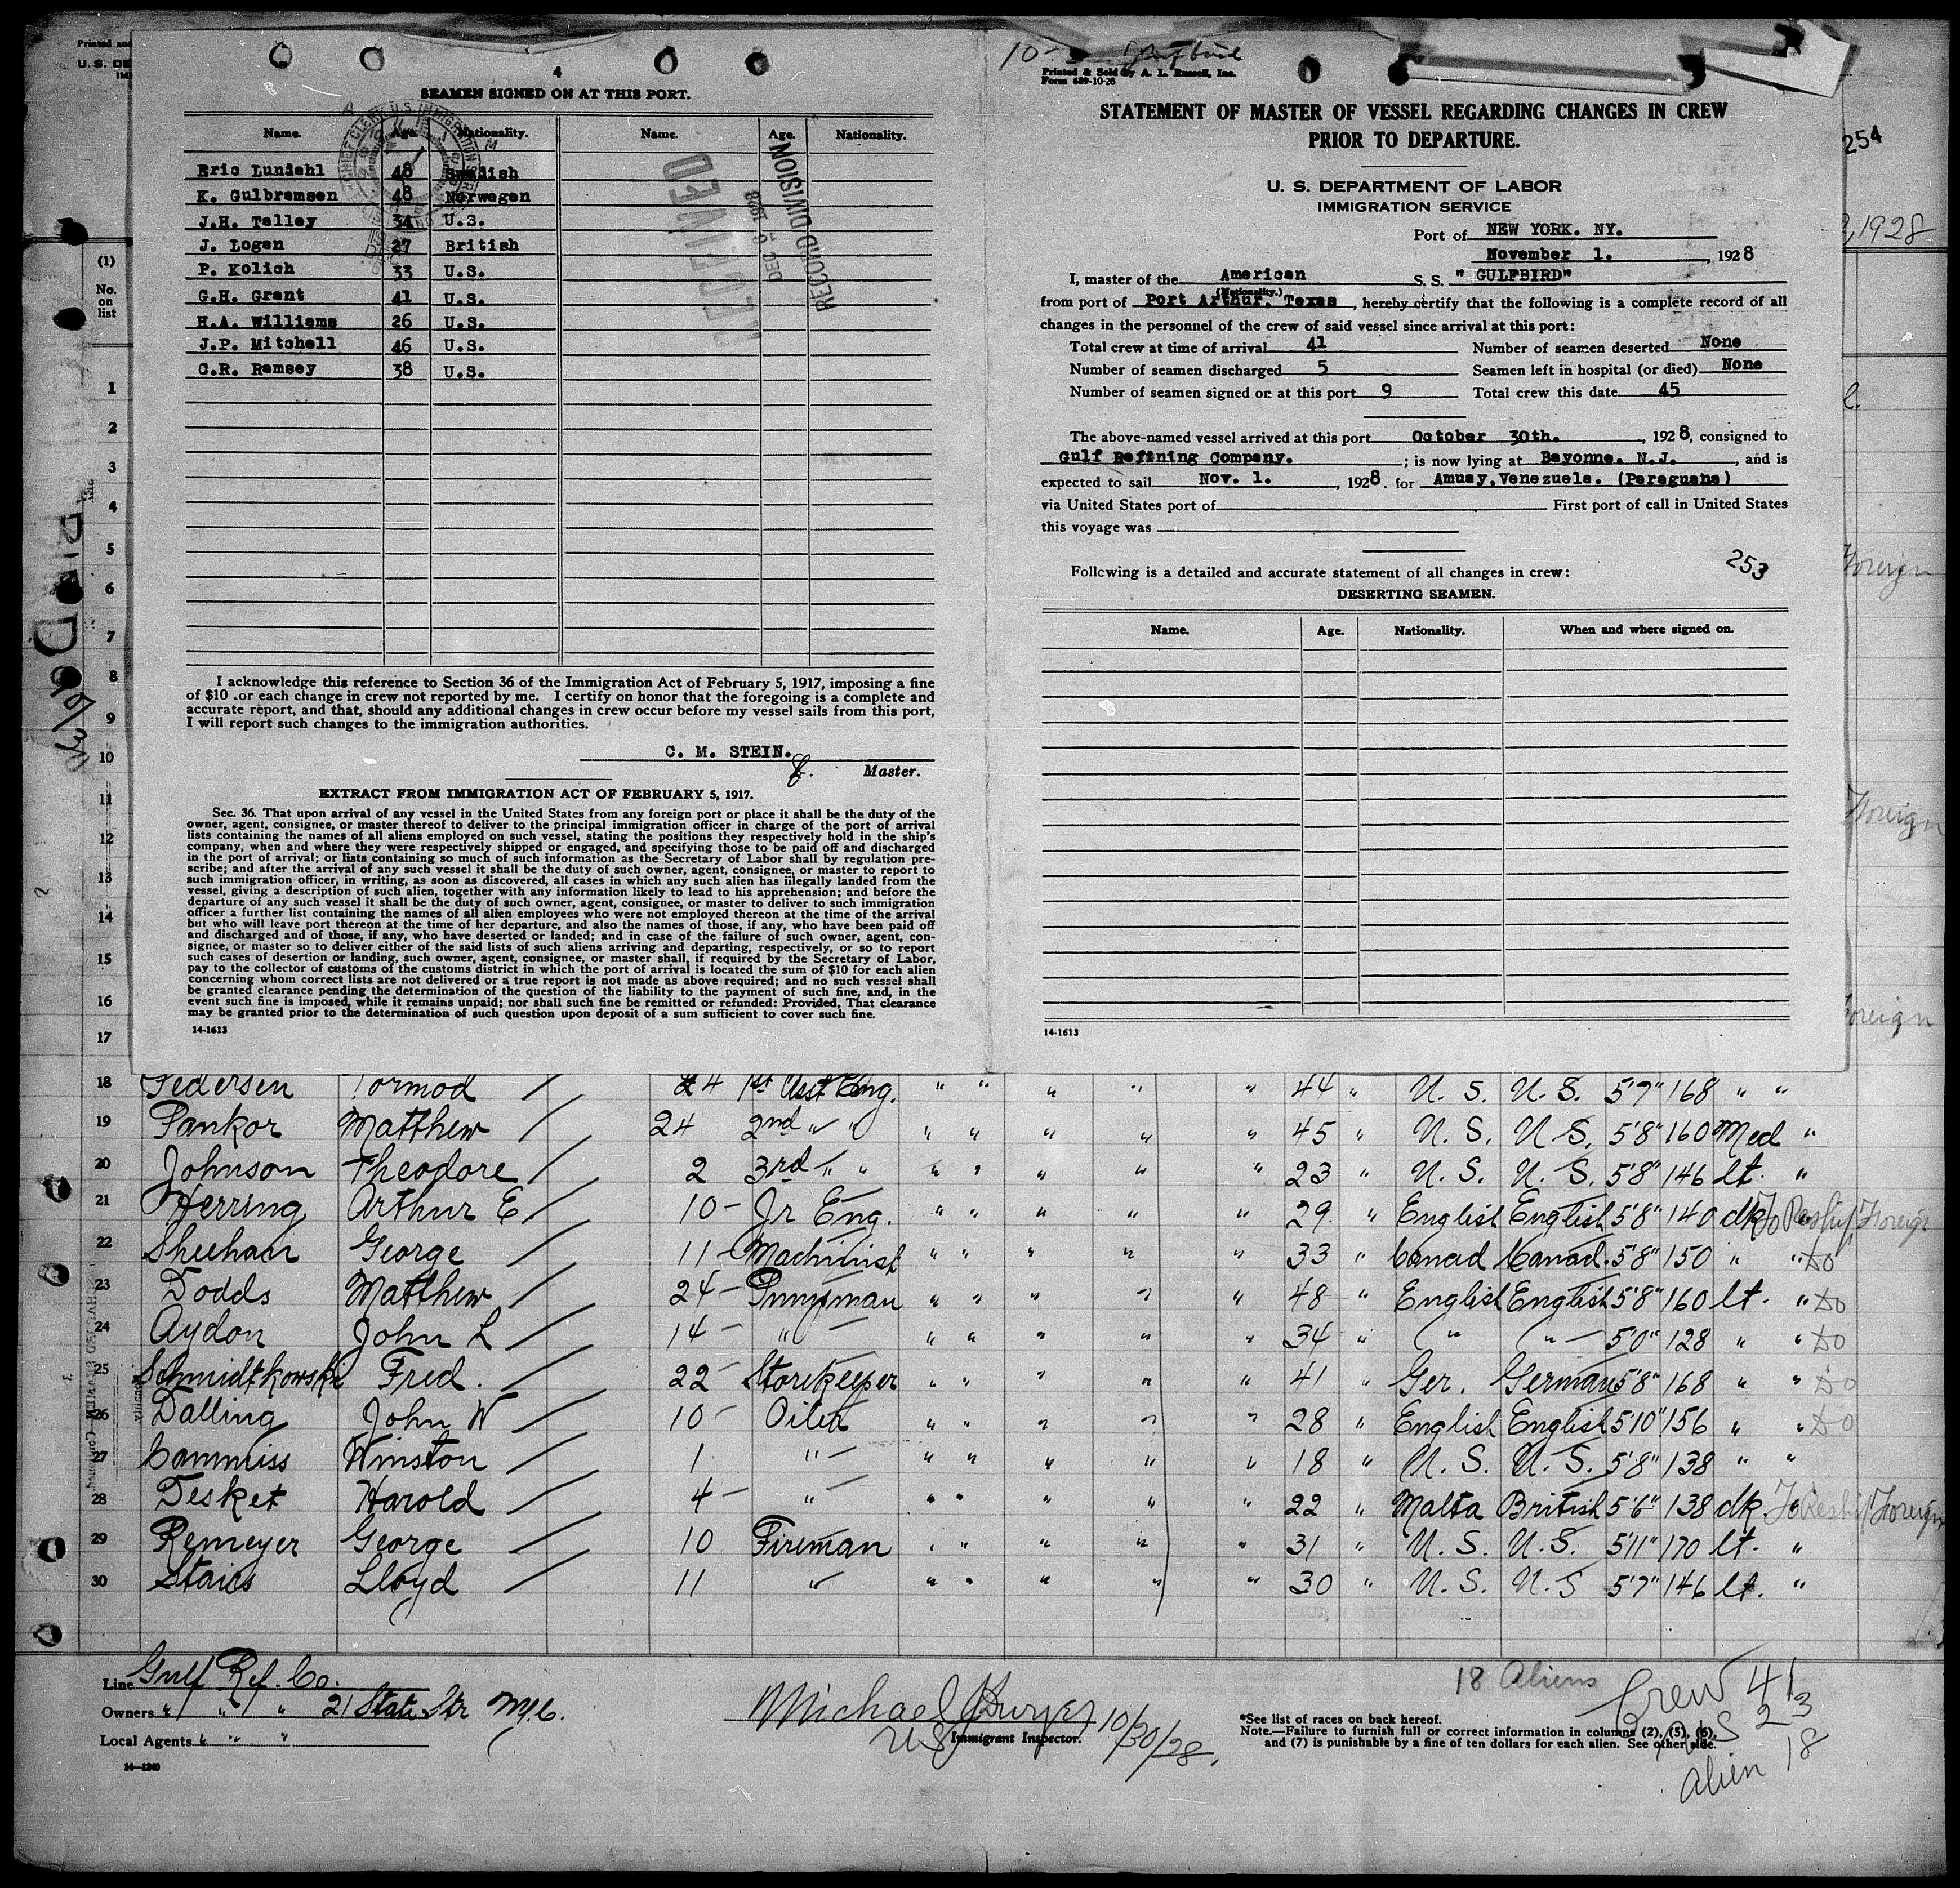 4
SEAMEN SIGNED ON AT THIS PORT.
Name. Age. Nationality. Name. Age. Nationality.
Eric Lundahl 48 Swedish
K. Gulbramsen 48 Norwegen
J.H. Talley 34 U.S.
J. Logan 27 British
P. Kolich 33 U.S.
G.H. Grant 41 U.S.
H.A. Williams 26 U.S.
J.P. Mitchell 46 U.S.
C.R. Ramsey 38 U.S.
RECEIVED
DEC 6 1928
RECORD DIVISION
I acknowledge this reference to Section 36 of the Immigration Act of February 5, 1917, imposing a fine
of $10 .or each change in crew not reported by me. I certify on honor that the foregoing is a complete and
accurate report, and that, should any additional changes in crew occur before my vessel sails from this port,
I will report such changes to the immigration authorities.
C. M. STEIN.
Master.
EXTRACT FROM IMMIGRATION ACT OF FEBRUARY 5, 1917.
Sec. 36. That upon arrival of any vessel in the United States from any foreign port or place it shall be the duty of the
owner, agent, consignee, or master thereof to deliver to the principal immigration officer in charge of the port of arrival
lists containing the names of all aliens employed on such vessel, stating the positions they respectively hold in the ship's
company, when and where they were respectively shipped or engaged, and specifying those to be paid off and discharged
in the port of arrival; or lists containing so much of such information as the Secretary of Labor shall by regulation pre-
scribe; and after the arrival of any such vessel it shall be the duty of such owner, agent, consignee, or master to report to
such immigration officer, in writing, as soon as discovered, all cases in which any such alien has illegally landed from the
vessel, giving a description of such alien, together with any information likely to lead to his apprehension; and before the
departure of any such vessel it shall be the duty of such owner, agent, consignee, or master to deliver to such immigration
officer a further list containing the names of all alien employees who were not employed thereon at the time of the arrival
but who will leave port thereon at the time of her departure, and also the names of those, if any, who have been paid off
and discharged and of those, if any, who have deserted or landed; and in case of the failure of such owner, agent, con-
signee, or master so to deliver either of the said lists of such aliens arriving and departing, respectively, or so to report
such cases of desertion or landing, such owner, agent, consignee, or master shall, if required by the Secretary of Labor,
pay to the collector of customs of the customs district in which the port of arrival is located the sum of $10 for each alien
concerning whom correct lists are not delivered or a true report is not made as above required; and no such vessel shall
be granted clearance pending the determination of the question of the liability to the payment of such fine, and, in the
event such fine is imposed, while it remains unpaid; nor shall such fine be remitted or refunded: Provided, That clearance
may be granted prior to the determination of such question upon deposit of a sum sufficient to cover such fine.
14-1613
Printed & Sold by A. L. Russell, Inc.
Form 689-10-28
STATEMENT OF MASTER OF VESSEL REGARDING CHANGES IN CREW
PRIOR TO DEPARTURE.
U. S. DEPARTMENT OF LABOR
IMMIGRATION SERVICE
Port of NEW YORK. NY.
November 1. , 1928
I, master of the American S. S. " GULFBIRD"
(Nationality.)
from port of Port Arthur. Texas , hereby certify that the following is a complete record of all
changes in the personnel of the crew of said vessel since arrival at this port:
Total crew at time of arrival 41 Number of seamen deserted None
Number of seamen discharged 5 Seamen left in hospital (or died) None
Number of seamen signed on at this port 9 Total crew this date 45
The above-named vessel arrived at this port October 30th. , 1928, consigned to
Gulf Refining Company. ; is now lying at Bayonne. N.J. , and is
expected to sail Nov. 1. , 1928. for Amuay, Venezuela. (Paraguana)
via United States port of First port of call in United States
this voyage was
253
Following is a detailed and accurate statement of all changes in crew:
DESERTING SEAMEN.
Name. Age. Nationality. When and where signed on.
14-1613
254
, 1928
(1)
No.
on
list
1
2
3
4
5
Foreign
6
7
8
9
10
11
12
Foreign
13
14
15
16
17
18 Pedersen Tormod 24 1st Asst Eng. " " " " " 44 " U. S. U. S. 5'7" 168 " "
19 Pankor Matthew 24 2nd " " " " " " " 45 " U. S. U. S. 5'8" 160 Med "
20 Johnson Theodore 2 3rd " " " " " " " 23 " U. S. U. S. 5'8" 146 lt. "
21 Herring Arthur E. 10 - Jr Eng. " " " " " 29 " English English 5'8" 140 dk To Reship Foreign
22 Sheehan George 11 - Machinist " " " " " 33 " Canad Canad. 5'8" 150 " " Do
23 Dodds Matthew 24 - Pumpman " " " " " 48 " English English 5'8" 160 lt. " Do
24 Aydon John L 14 - " " " " " " 34 " " " 5'0" 128 " " Do
25 Schmidtkowski Fred. 22 - Storekeeper " " " " " 41 " Ger. German 5'8" 168 " " Do
26 Dalling John W 10 - Oiler " " " " " 28 " English English 5'10" 156 " " Do
27 Cammiss Winston 1 " " " " " " 18 " U. S. U. S. 5'8" 138 " "
28 Tesket Harold 4 - " " " " " " 22 " Malta British 5'6" 138 dk " To Reship Foreign
29 Remeyer George 10 Fireman " " " " " 31 " U. S. U. S. 5'11" 170 lt. "
30 Stairs Lloyd 11 " " " " " " 30 " U. S. U. S 5'7" 146 lt. "
Line Gulf Ref. Co.
Owners " " " 21 State Str N.Y.C.
Local Agents " " "
14-1240
Michael J Dwyer 10/30/28.
US Immigrant Inspector.
18 Aliens
Crew 41
US 23
alien 18
*See list of races on back hereof.
Note.—Failure to furnish full or correct information in columns (2), (5), (6),
and (7) is punishable by a fine of ten dollars for each alien. See other side.